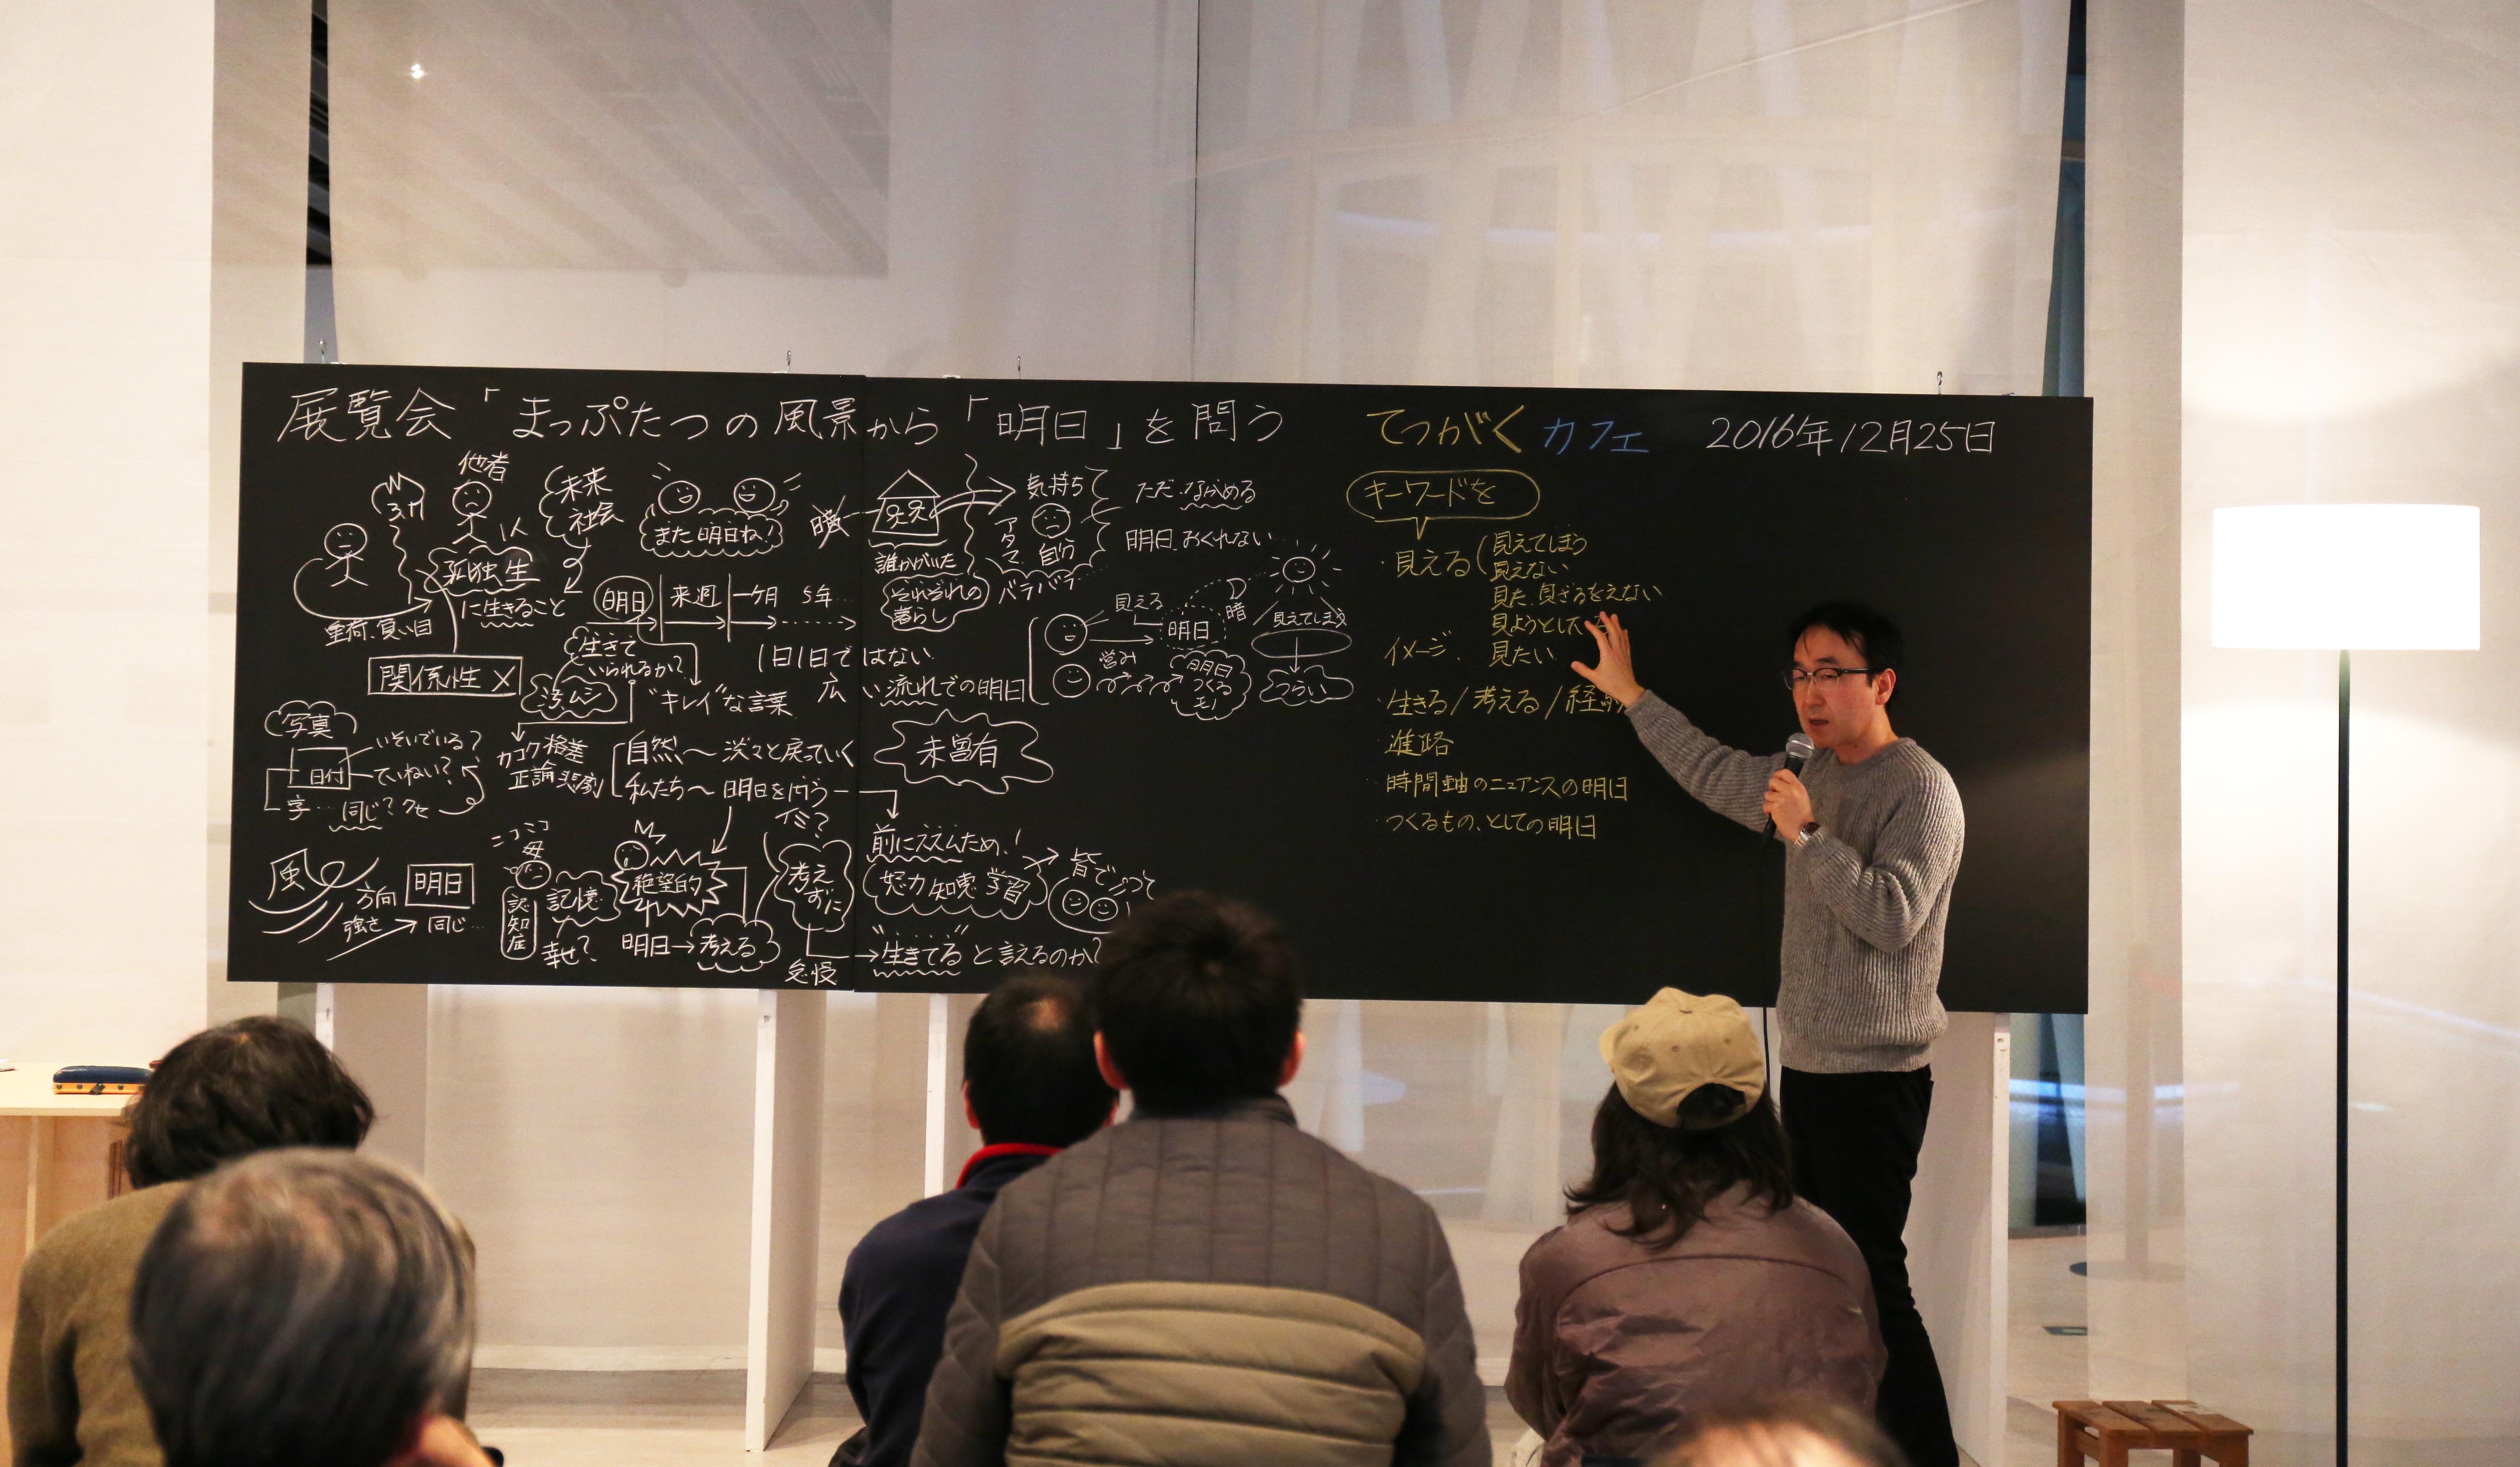 展覧会「まっぷたつの風景から「明日」を問う てつがくカフェ 2016年12月25日
他者
3.11
孤独
生
に生きること
重荷、負い目
関係性 X
未来
社会
また明日ね!
明日 来週 一ヶ月 5年…
生きて
いられるか?
1日1日ではない
広い流れでの明日
"キレイ"な言葉
カコク 格差
正論 悲劇
自然〜淡々と戻っていく
私たち〜明日を問う
イミ?
写真
日付
いそいでいる?
ていねい?
字… 同じ? クセ
風
方向
強さ
明日
同じ…
ニコニコ
母
認知症
記憶
幸せ?
絶望的
明日→考える
考え
ずに
怠慢
誰かがいた
それぞれの
暮らし
気持ち
アタマ
自分
バラバラ…
ただ、ながめる
明日、おくれない…
見える
明日
暗
見えてしまう
つらい
営み
明日
つくる
も!
未曾有
前にススムため!
努力 知恵 学習
皆で
"生きてる"と言えるのか?
キーワードを
・見える(見えてしまう
見えない
見た、見ざるをえない
見ようとした
見たい
イメージ
・生きる/考える/経験
・進路
・時間軸のニュアンスの明日
・つくるもの、としての明日